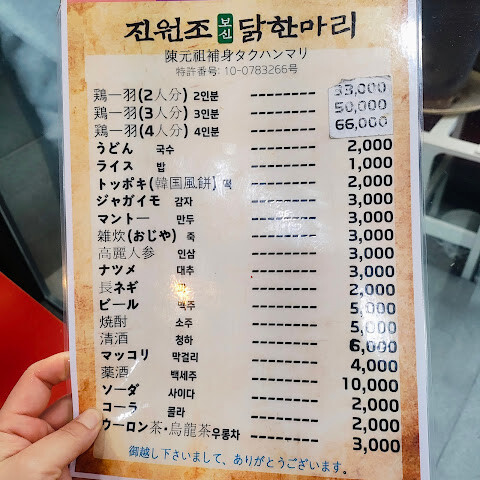 진원조 보신 닭한마리
陳元祖補身タクハンマリ
特許番号: 10-0783266号
鶏一羽(2人分) 2인분 ---------- 33,000
鶏一羽(3人分) 3인분 ---------- 50,000
鶏一羽(4人分) 4인분 ---------- 66,000
うどん 국수 ---------- 2,000
ライス 밥 ---------- 1,000
トッポキ(韓国風餅) 떡 ---------- 2,000
ジャガイモ 감자 ---------- 3,000
マントー 만두 ---------- 3,000
雑炊(おじや) 죽 ---------- 3,000
高麗人参 인삼 ---------- 3,000
ナツメ 대추 ---------- 3,000
長ネギ ---------- 2,000
ビール 맥주 ---------- 5,000
焼酎 소주 ---------- 5,000
清酒 청하 ---------- 6,000
マッコリ 막걸리 ---------- 4,000
薬酒 백세주 ---------- 10,000
ソーダ 사이다 ---------- 2,000
コーラ 콜라 ---------- 2,000
ウーロン茶・烏龍茶 우롱차 ---------- 3,000
御越し下さいまして、ありがとうございます。